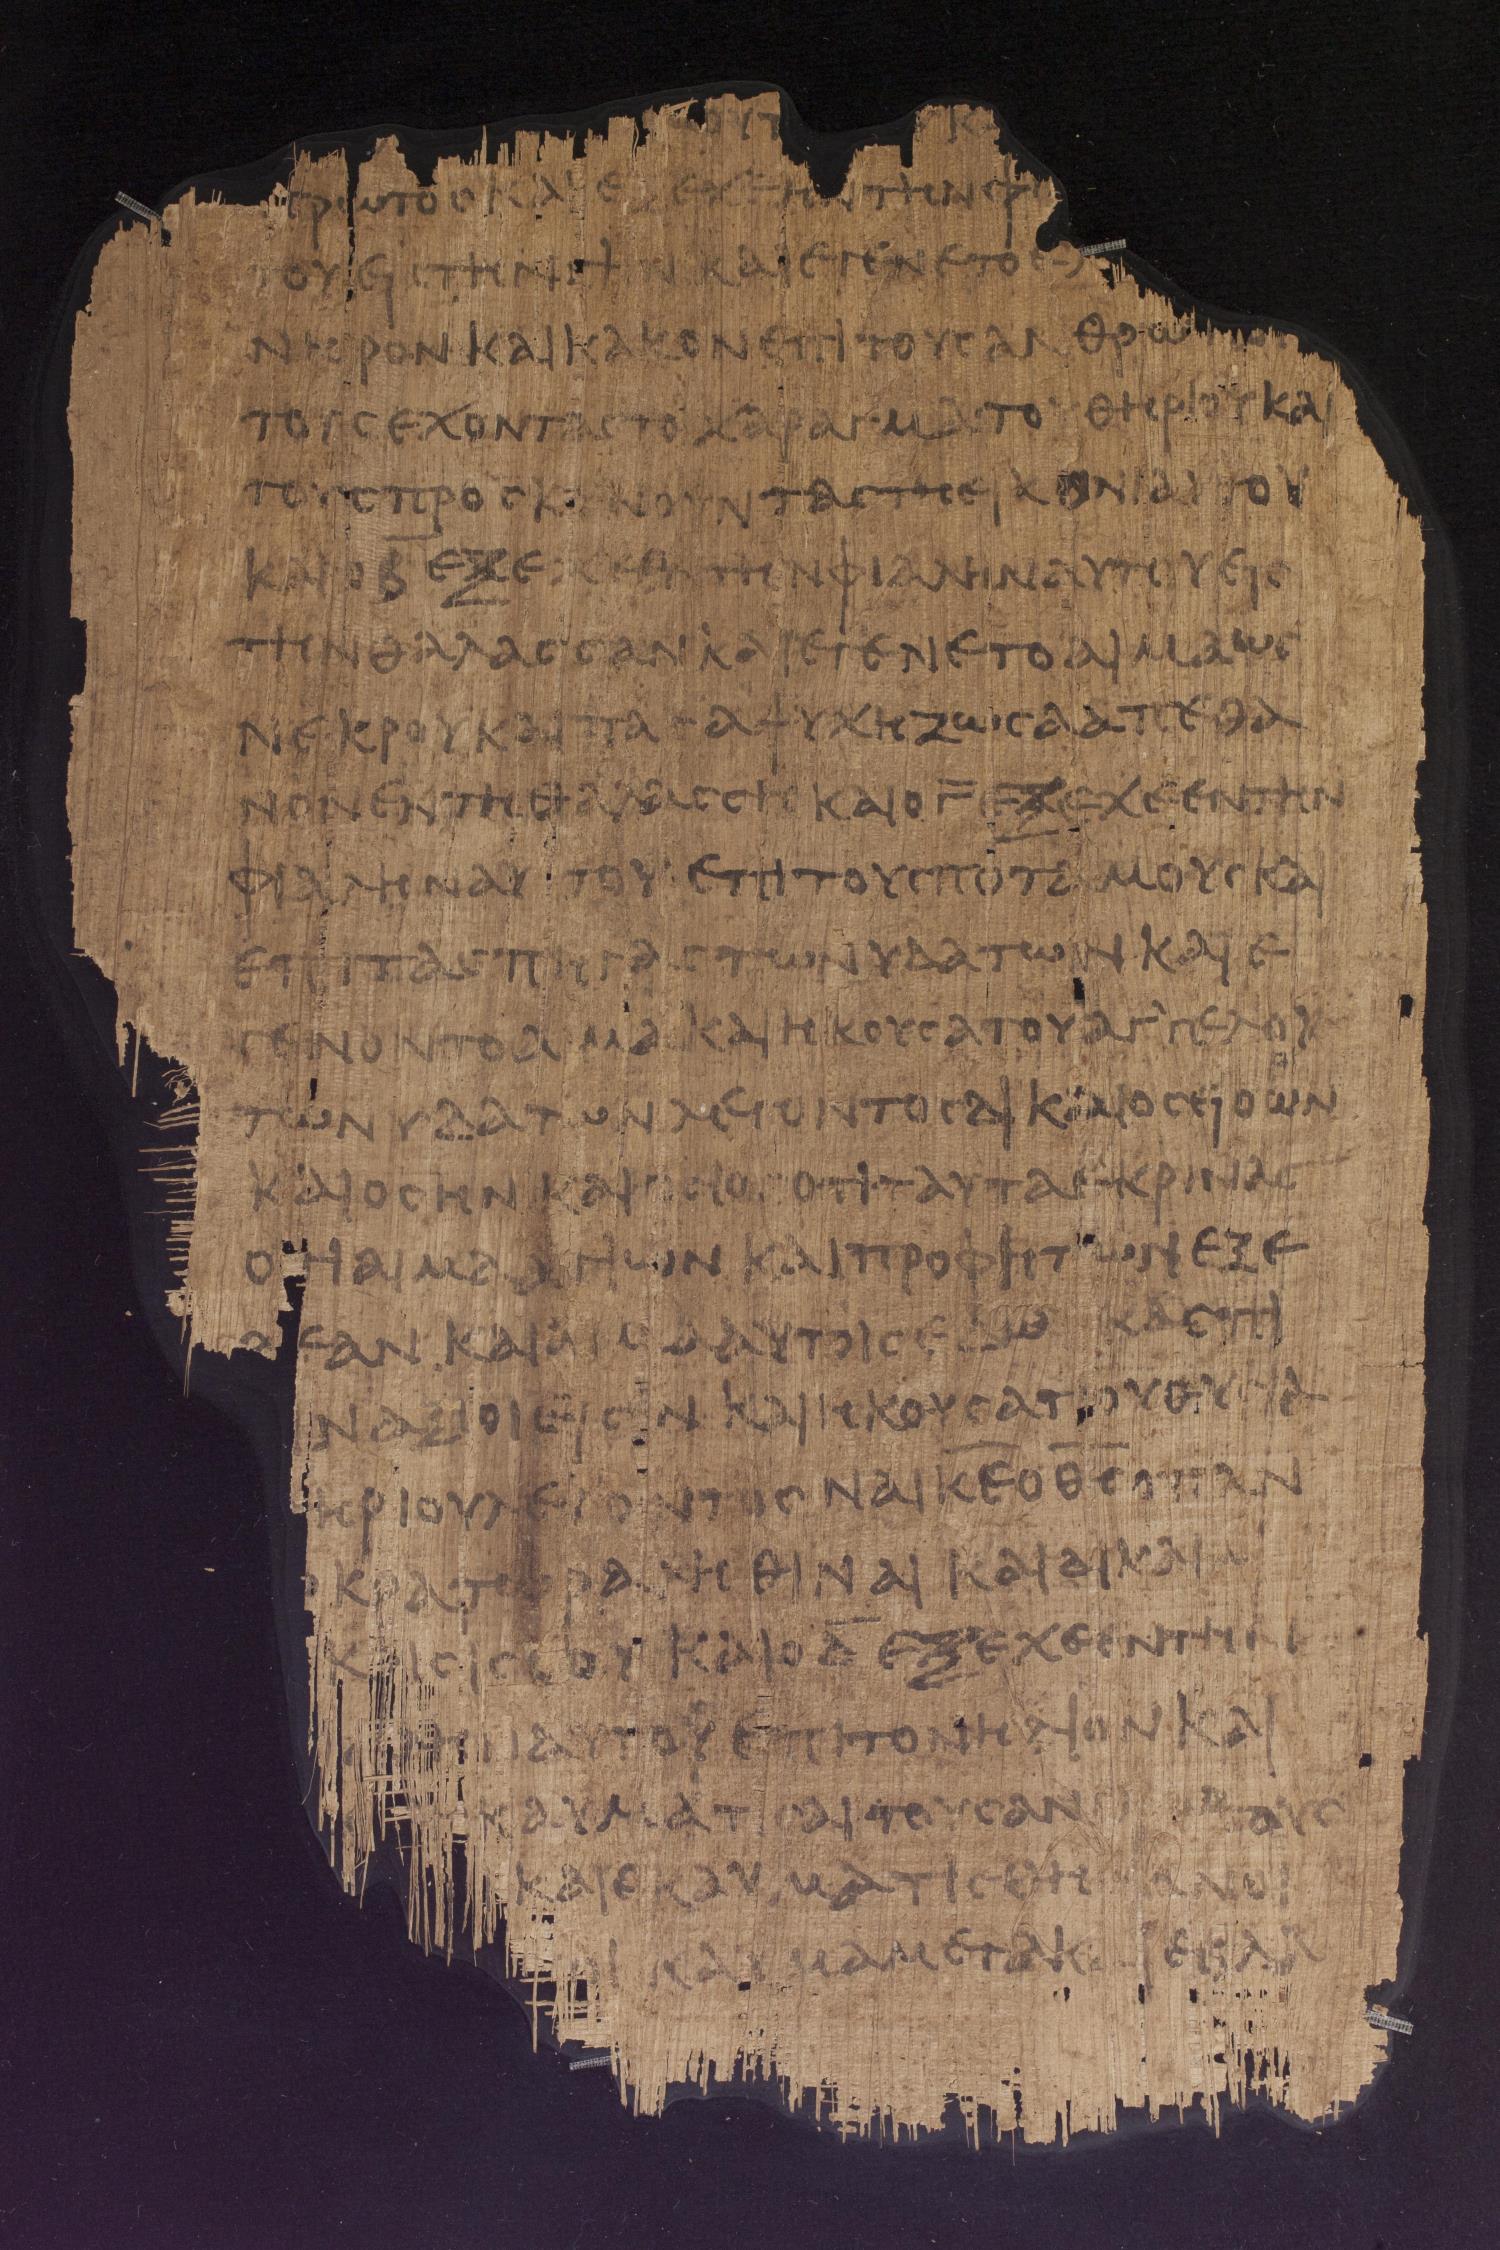 πρωτος και εξεχεεν την φι
του εις την γην και εγενετο ελ
πονηρον και κακον επι τους ανθρωπους
τους εχοντας το χαραγμα του θηριου και
τους προσκυνουντας τη εικονι αυτου
και ο β εξεχεεν την φιαλην αυτου εις
την θαλασσαν και εγενετο αιμα ως
νεκρου και πασα ψυχη ζωσα απεθα
νον εν τη θαλασση και ο γ εξεχεεν την
φιαλην αυτου επι τους ποταμους και
επι τας πηγας των υδατων και ε
γενοντο αιμα και ηκουσα του αγγελου
των υδατων λεγοντος δικαιος ει ο ων
και ος ην και οσιος οτι ταυτα εκρινας
οτι αιμα αγιων και προφητων εξε
χεαν και αιμα αυτοις εδω κας πι
ν αξιοι εισιν και ηκουσα του θυσια
τηριου λεγοντος ναι κε ο θεος παν
τοκρατωρ αληθιναι και δικαι
κρισεις σου και ο δ εξεχεεν την
αυτου επι τον ηλιον και
καυματισαι τους αν
και εκαυματισθη ανοι
οι καυμα μεγα κ εβλα